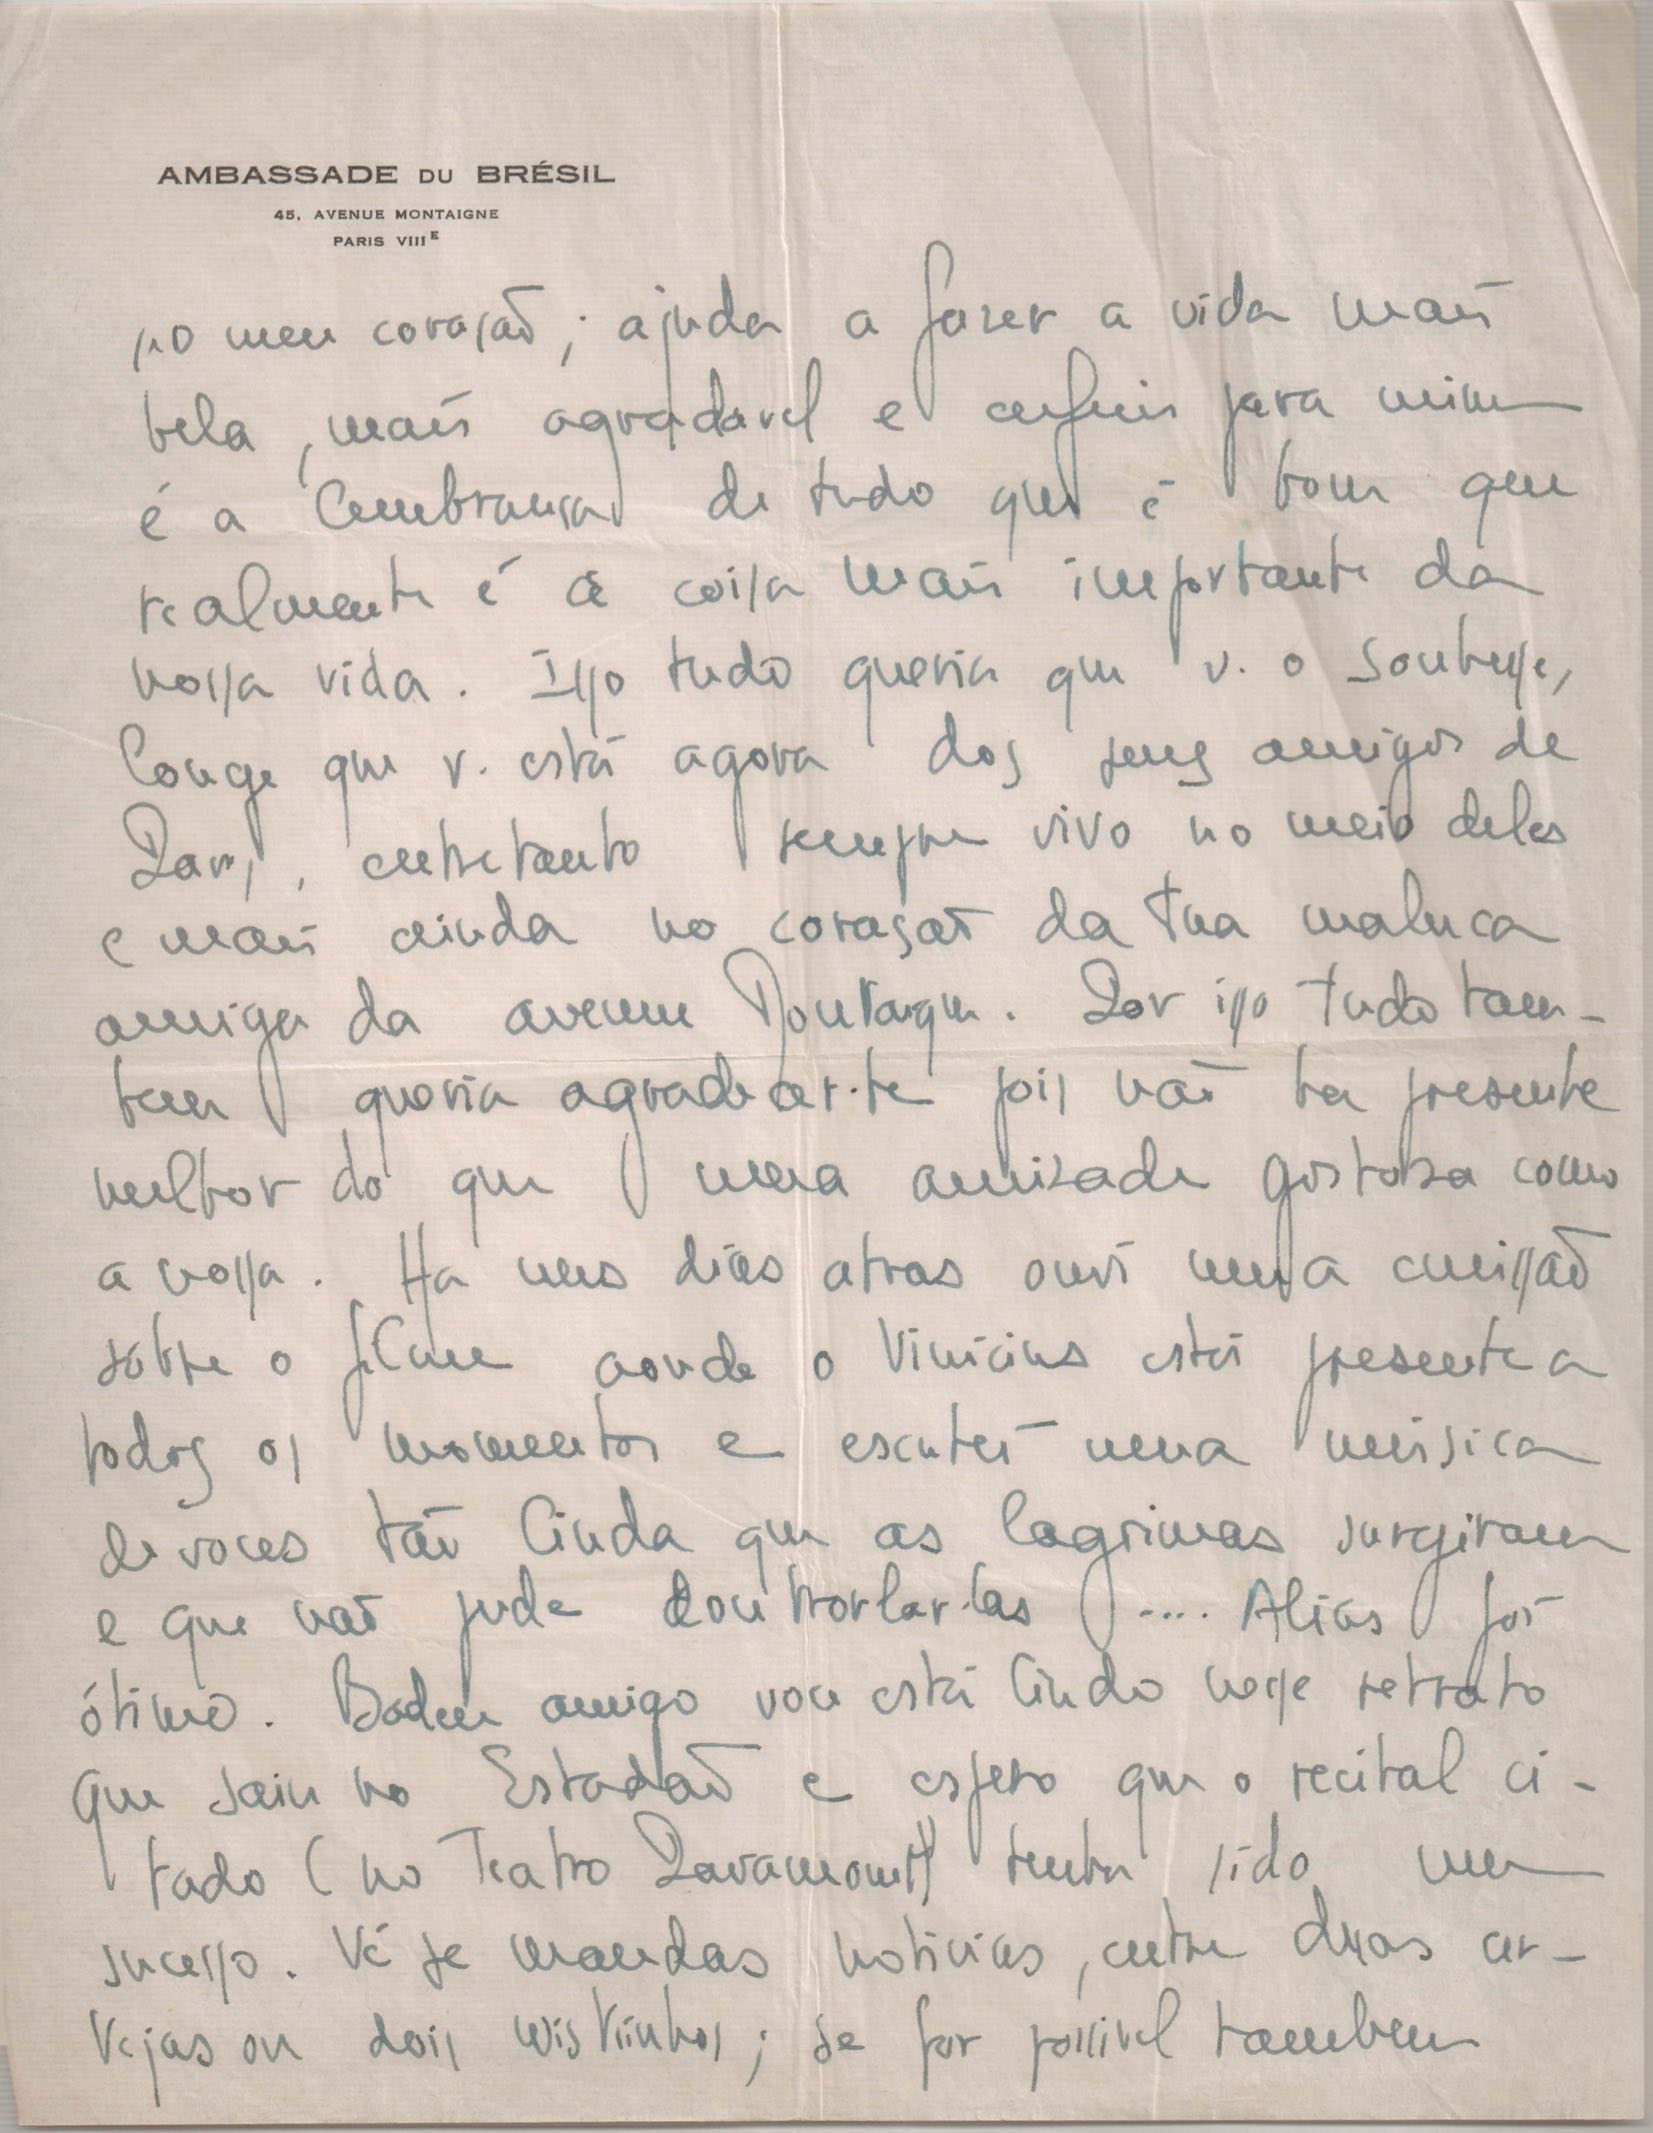 AMBASSADE DU BRÉSIL
45, AVENUE MONTAIGNE
PARIS VIIIE
no meu coração; ajuda a fazer a vida mais
bela, mais agradavel e enfim para mim
é a lembrança de tudo que é bom que
realmente é a coisa mais importante da
nossa vida. Isso tudo queria que v. o soubesse,
longe que v. está agora dos seus amigos de
Paris, entretanto sempre vivo no meio deles
e mais ainda no coração da tua maluca
amiga da avenue Montaigne. Por isso tudo tam-
bem queria agradecer-te pois não ha presente
melhor do que uma amizade gostosa como
a nossa. Ha uns dias atras ouvi uma emissão
sôbre o filme aonde o Vinicius está presente a
todos os momentos e escutei uma música
de voces tão linda que as lagrimas surgiram
e que não pude controlar-las .... Alias foi
ótimo. Baden amigo você está lindo nesse retrato
que saiu no Estadão e espero que o recital ci-
tado (no Teatro Paramount) tenha sido um
sucesso. Vê se mandas noticias, entre duas cer-
vejas ou dois wiskiinhos; se for possivel tambem